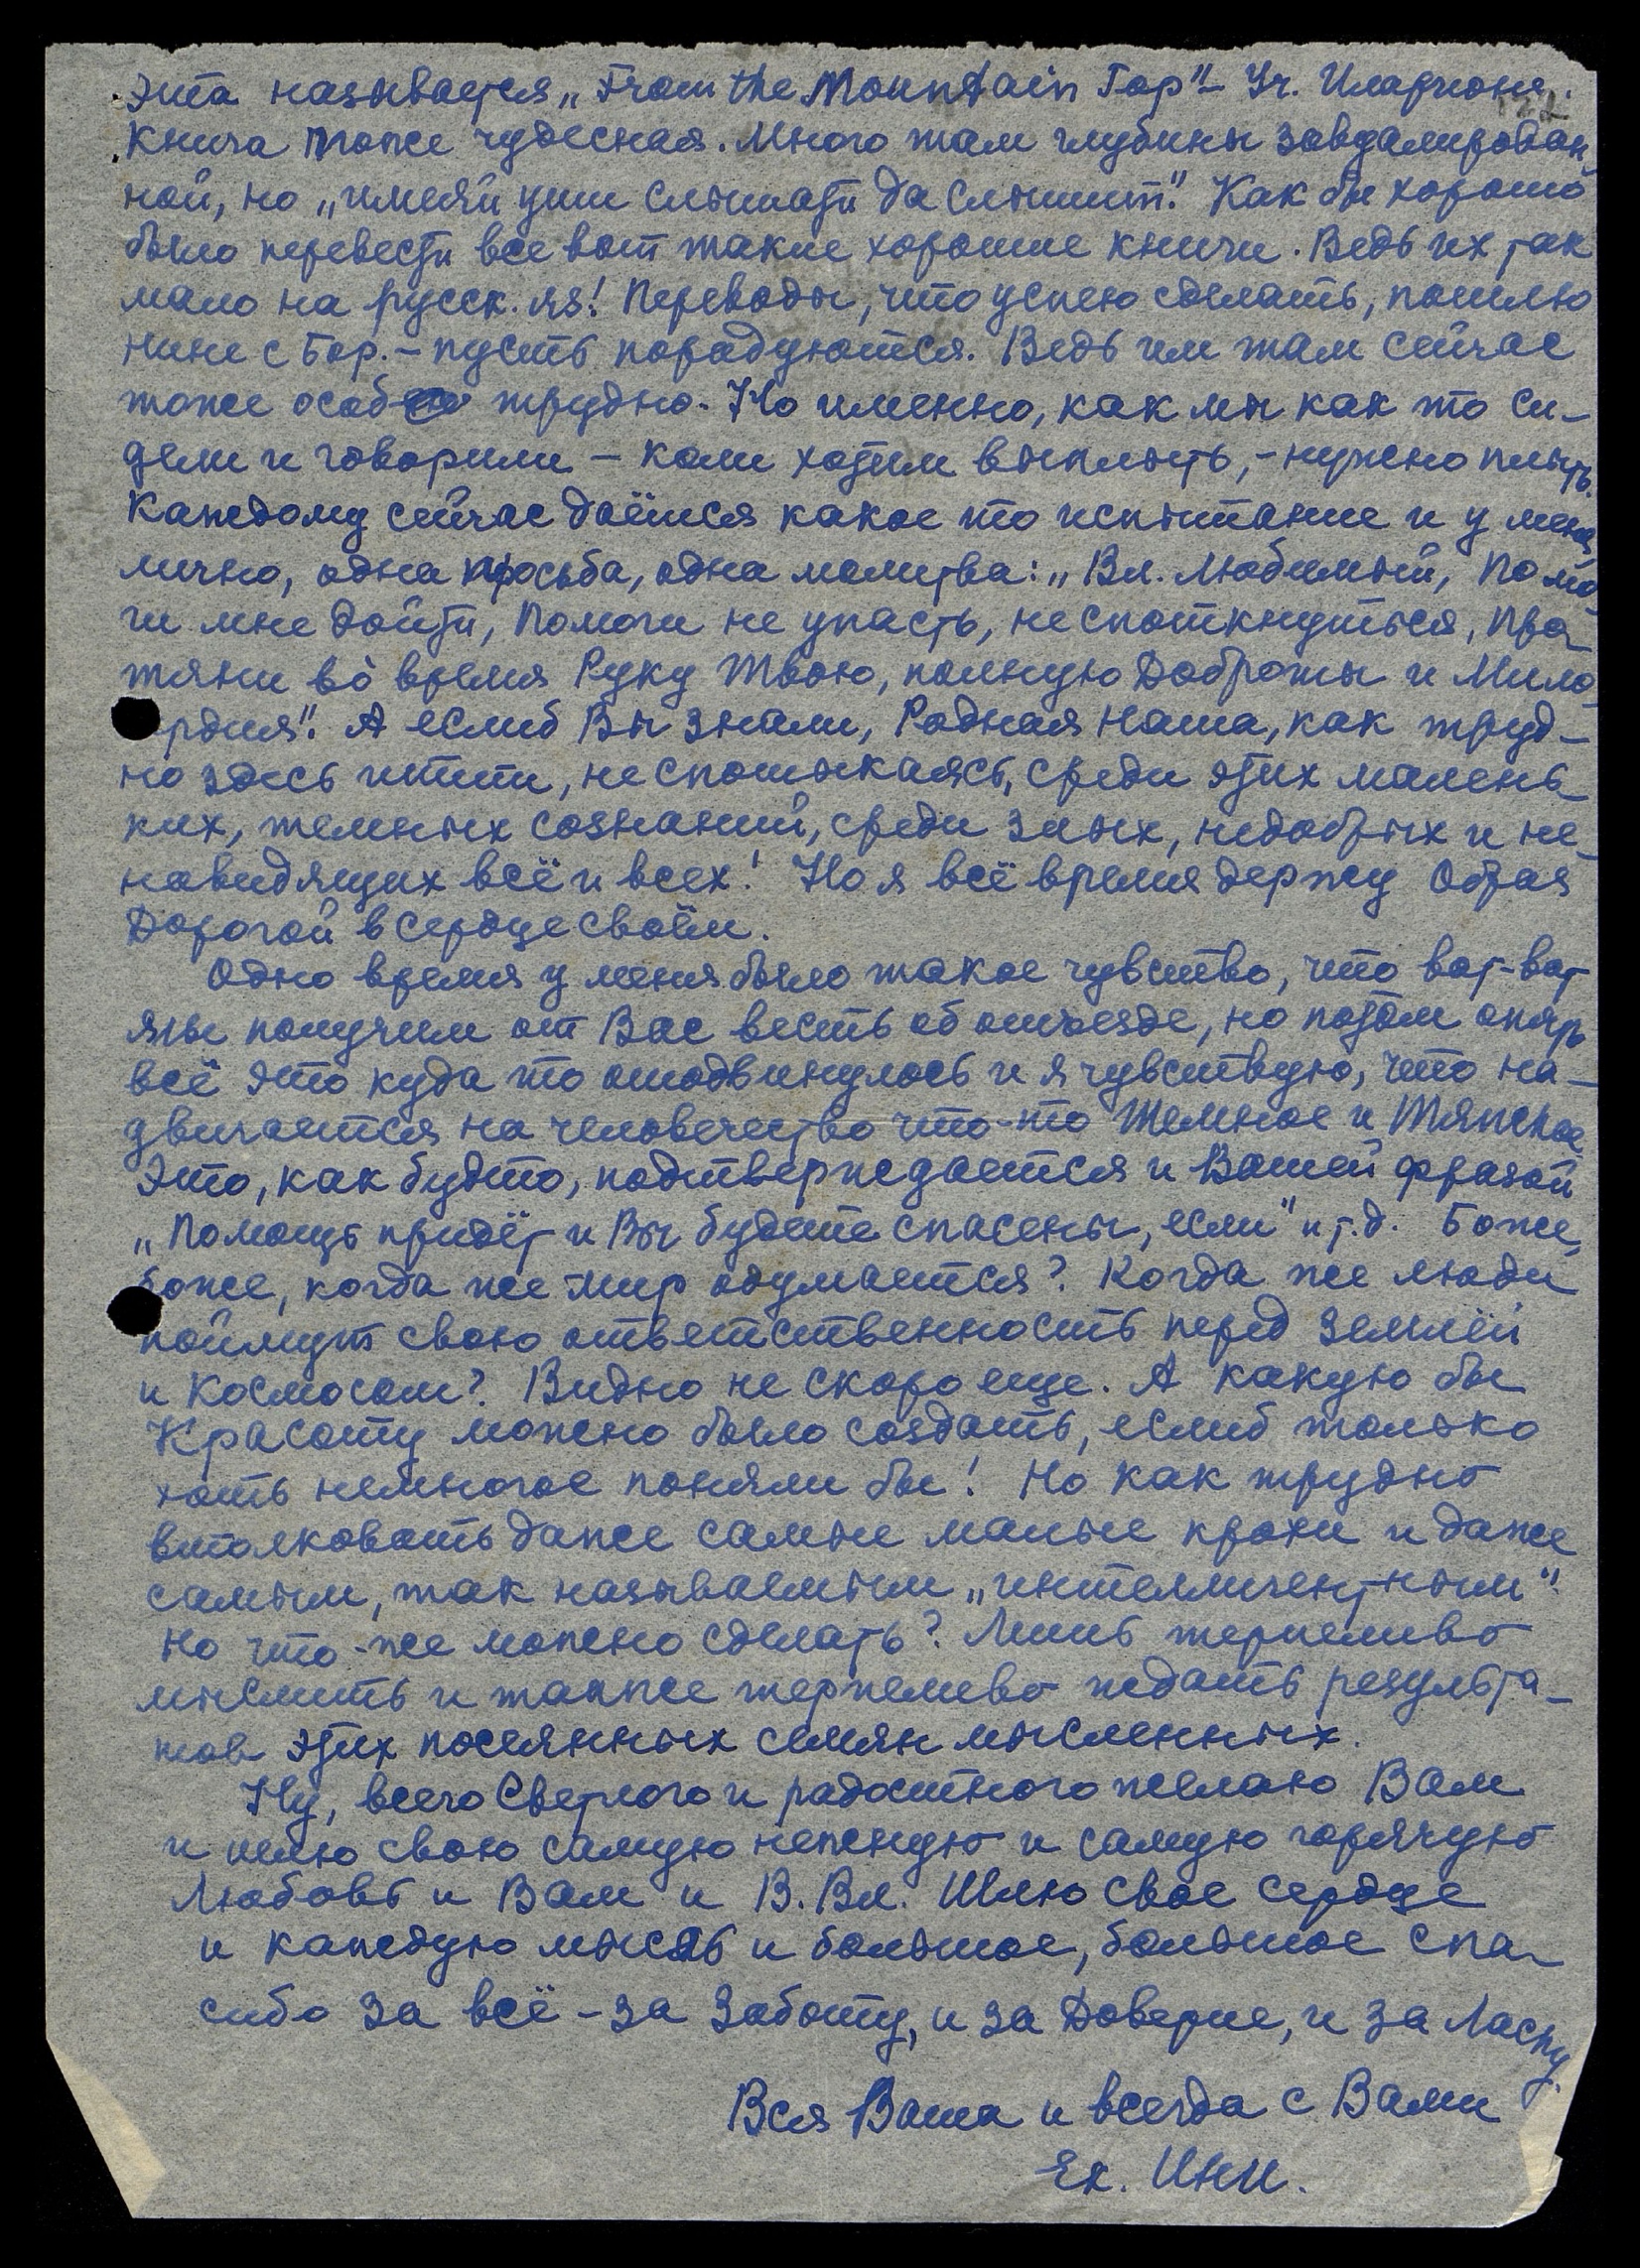 эта называется „From the Mountain Top" – Уч. Илариона.
Книга тоже чудесная. Много там глубины завуалирован-
ной, но „имеяй уши слышати да слышит". Как бы хорошо
было перевести все вот такие хорошие книги. Ведь их так
мало на русск. яз! Переводы, что успею сделать, пошлю
Нине с Бор. – пусть порадуются. Ведь им там сейчас
тоже особ трудно. Но именно, как мы как то си-
дели и говорили – коли хотим выплыть, – нужно плыть.
Каждому сейчас даётся какое то испытание и у меня
лично, одна просьба, одна молитва: „Вл. Любимый, Помо-
ги мне дойти, Помоги не упасть, не споткнуться, Про-
тяни во время Руку Твою, полную Доброты и Мило-
рдия". А еслиб Вы знали, Родная Наша, как труд-
но здесь итти, не спотыкаясь, среди этих малень-
ких, темных сознаний, среди злых, недобрых и не-
навидящих всё и всех! Но я всё время держу Образ
Дорогой в сердце своём.
Одно время у меня было такое чувство, что вот-вот
мы получим от Вас весть об отъезде, но потом опять
всё это куда то отодвинулось и я чувствую, что на-
двигается на человечество что-то Темное и Тяжкое.
Это, как будто, подтверждается и Вашей фразой
„Помощь придёт и Вы будете спасены, если" и т.д. Боже,
Боже, когда же мир одумается? Когда же люди
поймут свою ответственность перед Землёй
и Космосом? Видно не скоро еще. А какую бы
Красоту можно было создать, еслиб только
хоть немногое поняли бы! Но как трудно
втолковать даже самые малые крохи и даже
самым, так называемым „интеллигентным".
Но что-же можно сделать? Лишь терпеливо
мыслить и также терпеливо ждать результа-
тов этих посеянных семян мысленных.
Ну, всего Светлого и радостного желаю Вам
и шлю свою самую нежную и самую горячую
Любовь и Вам и В. Вл. Шлю свое сердце
и каждую мысль и большое, большое спа-
сибо за всё – за Заботу, и за Доверие, и за Ласку.
Вся Ваша и всегда с Вами
Ек. Инг.